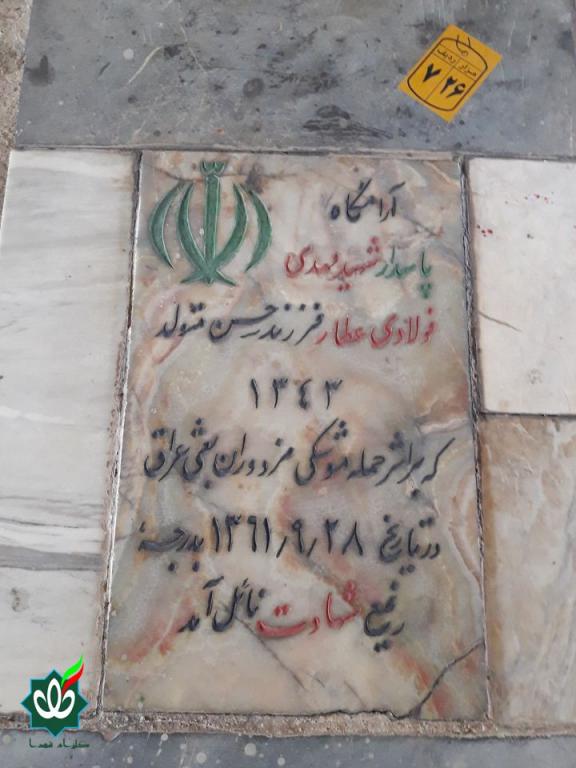 مزار ردیف
۷ ۲۶
آرامگاه
پاسدار شهید مهدی
فولادی عطار فرزند حسن متولد
۱۳۴۳
که بر اثر حمله موشکی مزدوران بعثی عراق
در تاریخ ۱۳۶۱٫۹٫۲۸ بدرجهٔ
رفیع شهادت نائل آمد